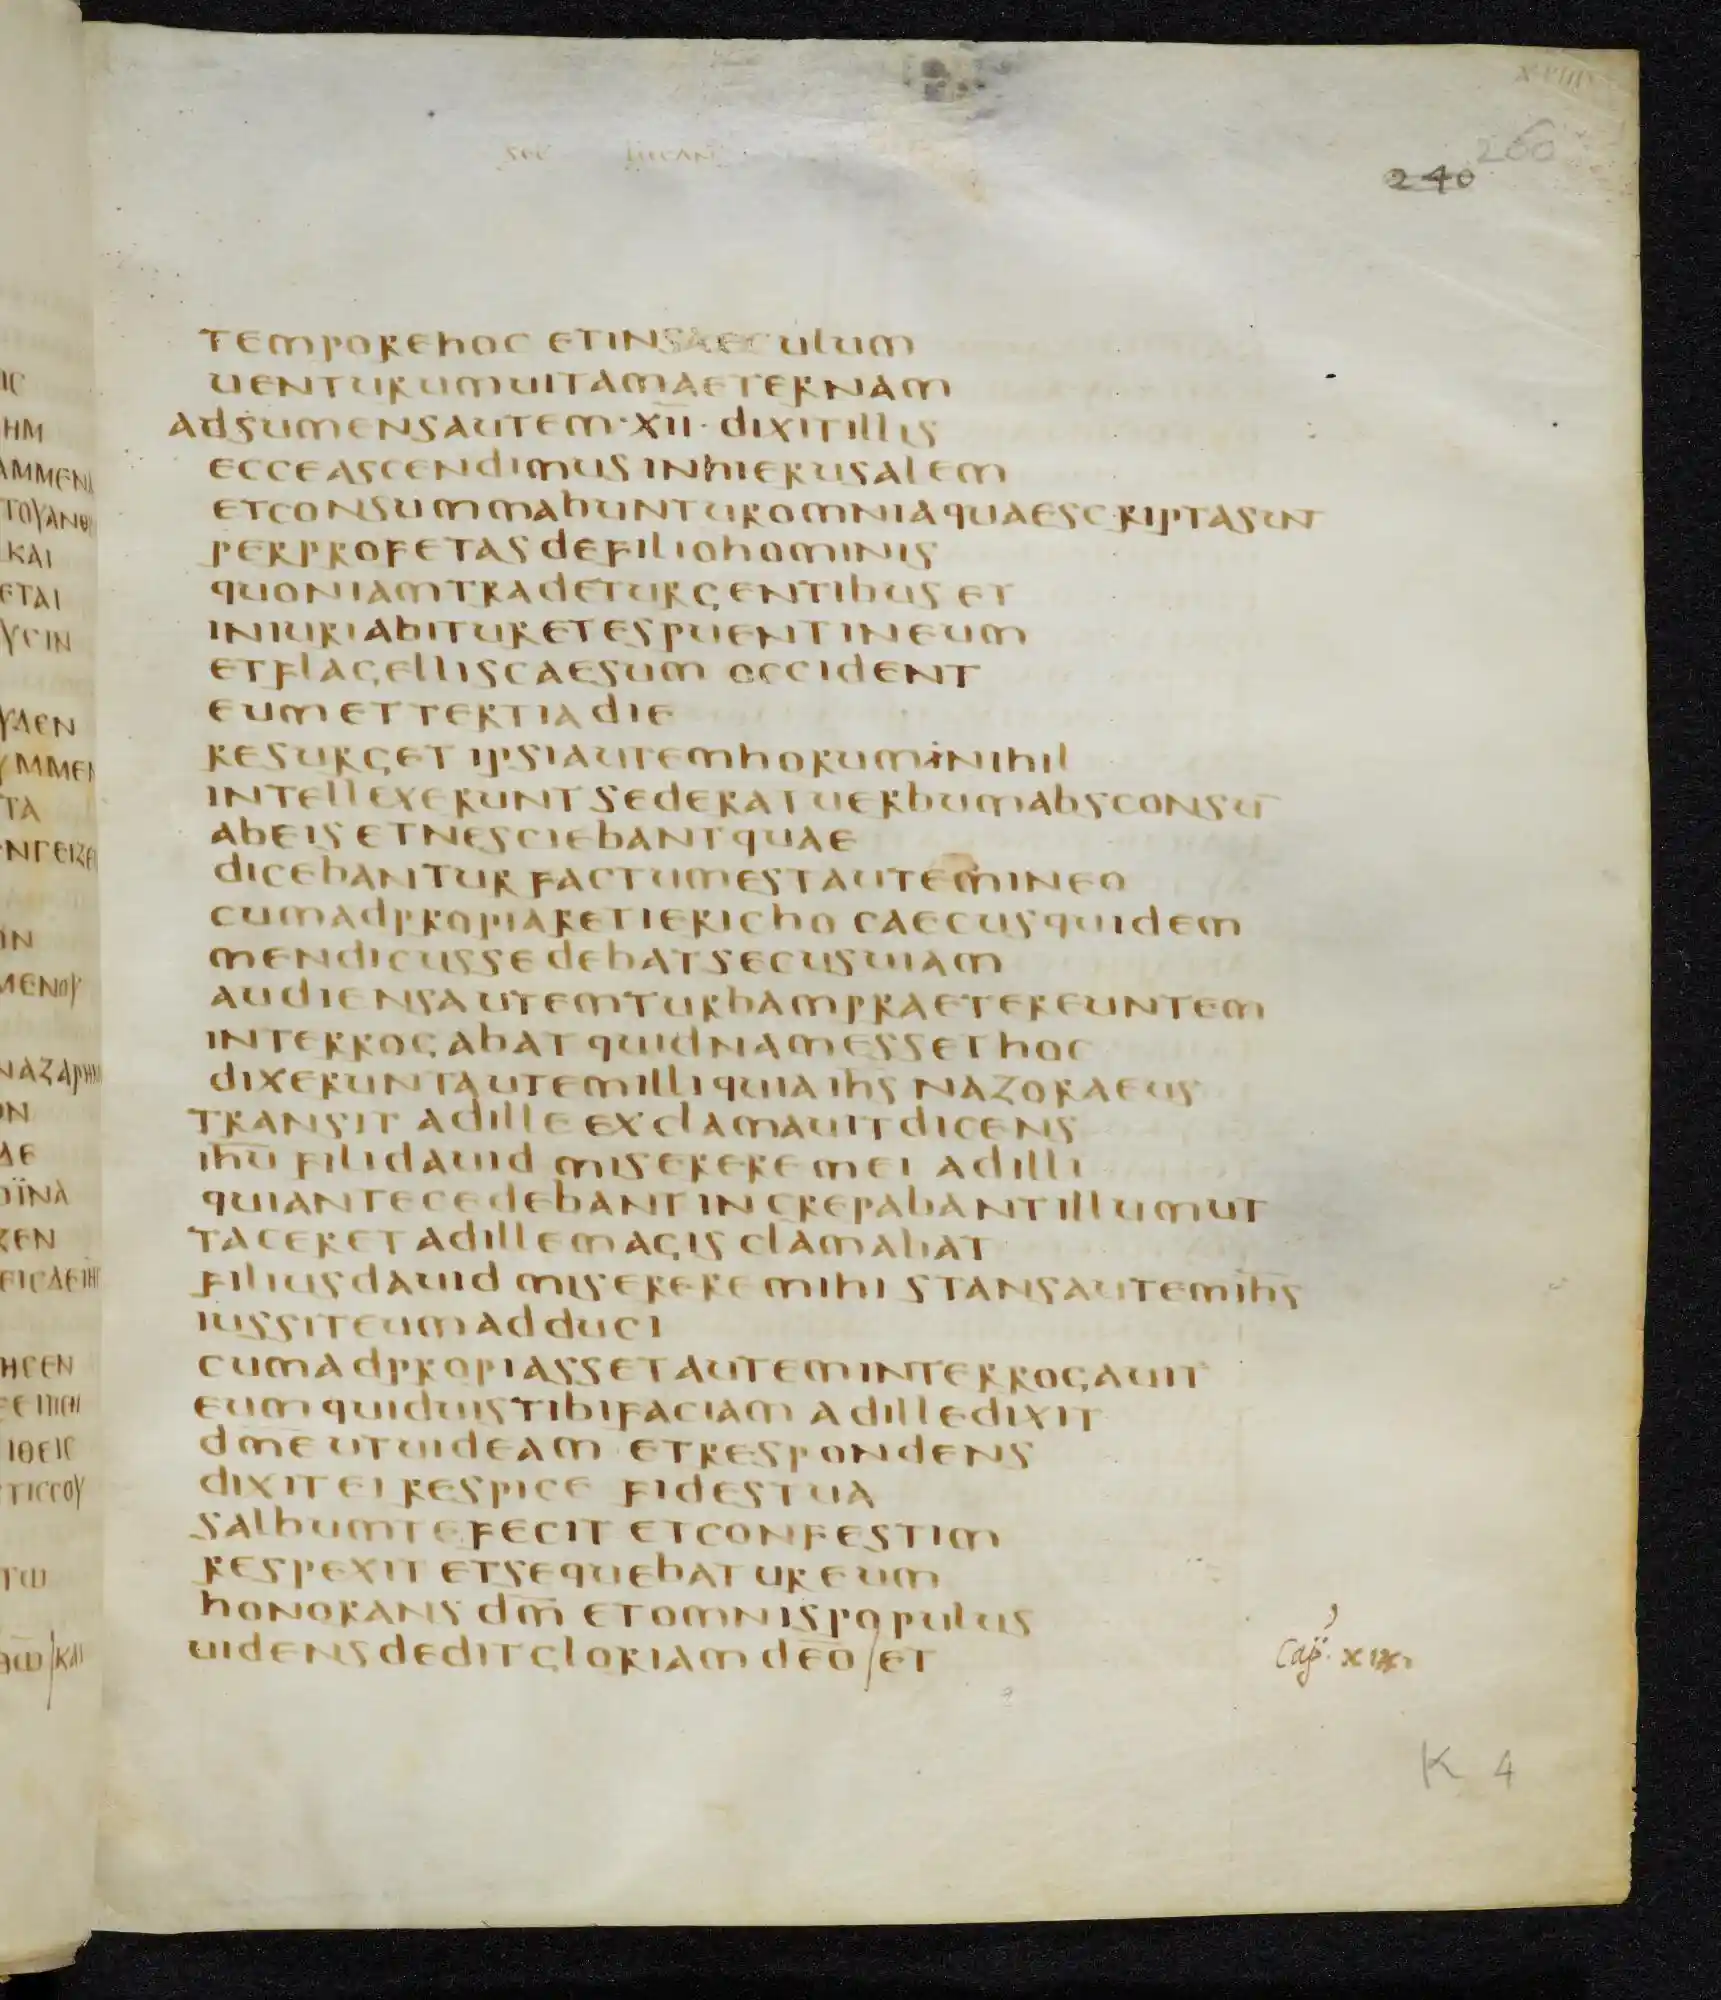 sec lucan
240
260
temporehoc etinsaeculum
uenturumuitamaeternam
adsumensautem·xii· dixitillis
ecceascendimus inhierusalem
etconsummabunturomniaquaescriptasunt
perprofetas defiliohominis
quoniamtradeturgentibus et
iniuriabituretespuentineum
etflagelliscaesum occident
eumettertiadie
resurget ipsiautemhoruminihil
intellexerunt sederatuerbumabsconsū
abeis etnesciebantquae
dicebantur factumestautemineo
cumadpropiaretiericho caecusquidem
mendicussedebatsecusuiam
audiensautemturbampraetereuntem
interrogabat quidnamessethoc
dixeruntautemilliquia ih̅s nazoraeus
transit adille exclamauitdicens
ih̅u filidauid misereremei adilli
quiantecedebantincrepabantillumut
taceret adillemagis clamabat
filiusdauid misereremihi stansautemih̅s
iussiteumadduci
cumadpropiassetauteminterrogauit
eumquiduistibifaciam adilledixit
dm̅e utuideam etrespondens
dixitei respice fidestua
salbumtefecit etconfestim
respexit etsequebatureum
honorans dm̅ etomnispopulus
uidensdeditgloriam de̅o/et
K 4
ΗΜ
ΑΜΜΕΝ
ΚΑΙ
ΕΤΑΙ
ΥCΙΝ
ΥΔΕΝ
ΤΑ
ΙΝ
ΜΕΝΟΥ
ΝΑΖΑΡΗΝ
ΟΝ
ΔΕ
ΟΪΝΑ
ΖΕΝ
ΗCΕΝ
ΤΙCCΟΥ
ΤΩ
ΘΩ̅/ΚΑΙ